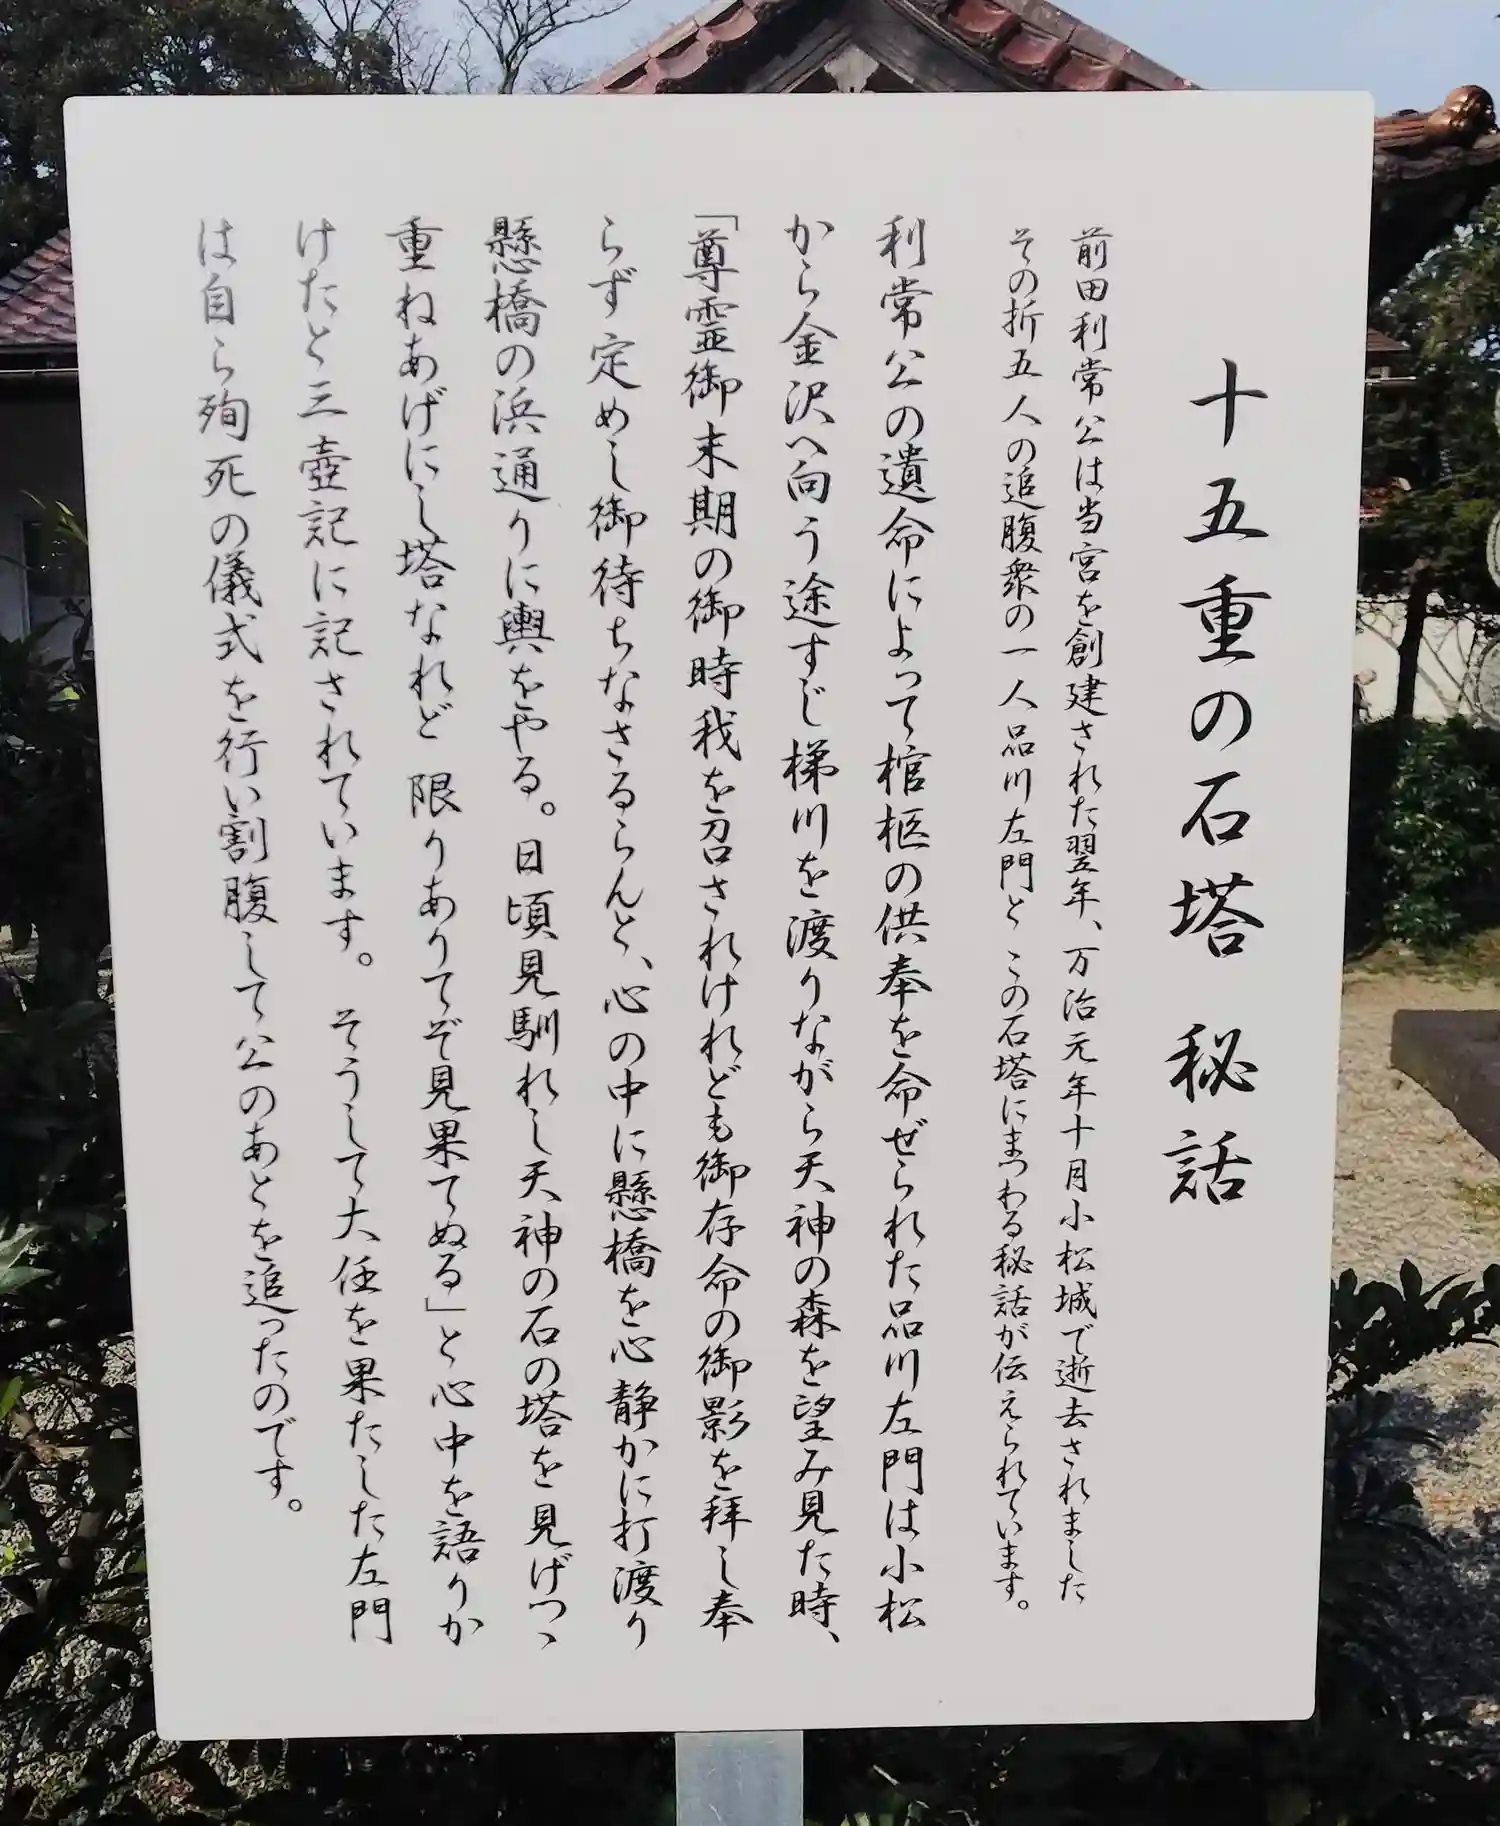 十五重の石塔 秘話
前田利常公は当宮を創建された翌年、万治元年十月小松城で逝去されました
その折五人の追腹衆の一人品川左門と この石塔にまつわる秘話が伝えられています。
利常公の遺命によって棺柩の供奉を命ぜられた品川左門は小松
から金沢へ向う途すじ梯川を渡りながら天神の森を望み見た時、
「尊霊御末期の御時我を召されけれども御存命の御影を拝し奉
らず定めし御待ちなさるらんと、心の中に懸橋を心静かに打渡り
懸橋の浜通りに輿をやる。日頃見馴れし天神の石の塔を見げつゝ
重ねあげにし塔なれど 限りありてぞ見果てぬる」と心中を語りか
けたと三壺記に記されています。 そうして大任を果たした左門
は自ら殉死の儀式を行い割腹して公のあとを追ったのです。